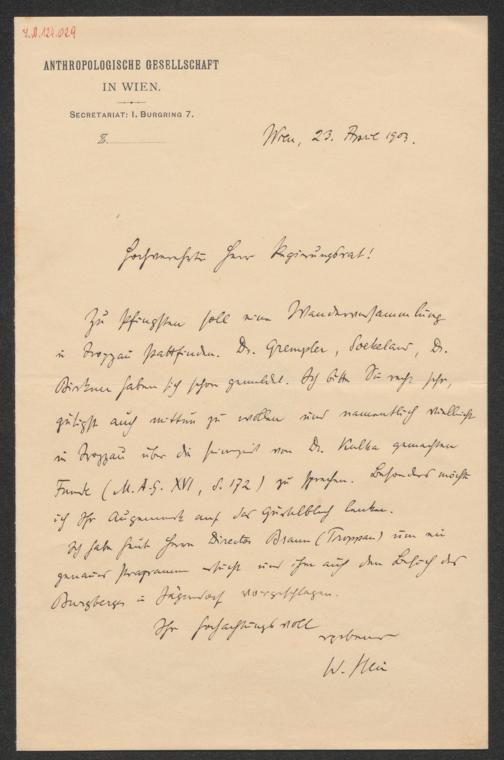 ANTHROPOLOGISCHE GESELLSCHAFT
IN WIEN.
SECRETARIAT: I. BURGRING 7.
Wien, 23. April 1903.
Hochverehrter Herr Regierungsrat!
Zu Pfingsten soll eine Wanderversammlung
in Troppau stattfinden. Dr. Grempler, Soekeland, Dr.
Birkner haben sich schon gemeldet. Ich bitte Sie recht sehr,
gütigst auch mittun zu wollen und namentlich vielleicht
in Troppau über die von Dr. Kulka gemachten
Funde (M. A. G. XVI, S. 172) zu sprechen. Besonders möchte
ich Ihr Augenmerk auf das Gürtelblech lenken.
Ich habe heut Herrn Director Braun (Troppau) um ein
genaues Programm ersucht und ihm auch den Besuch des
Burgberges in Jägerndorf vorgeschlagen.
Ihr hochachtungsvoll
ergebener
W. Hein